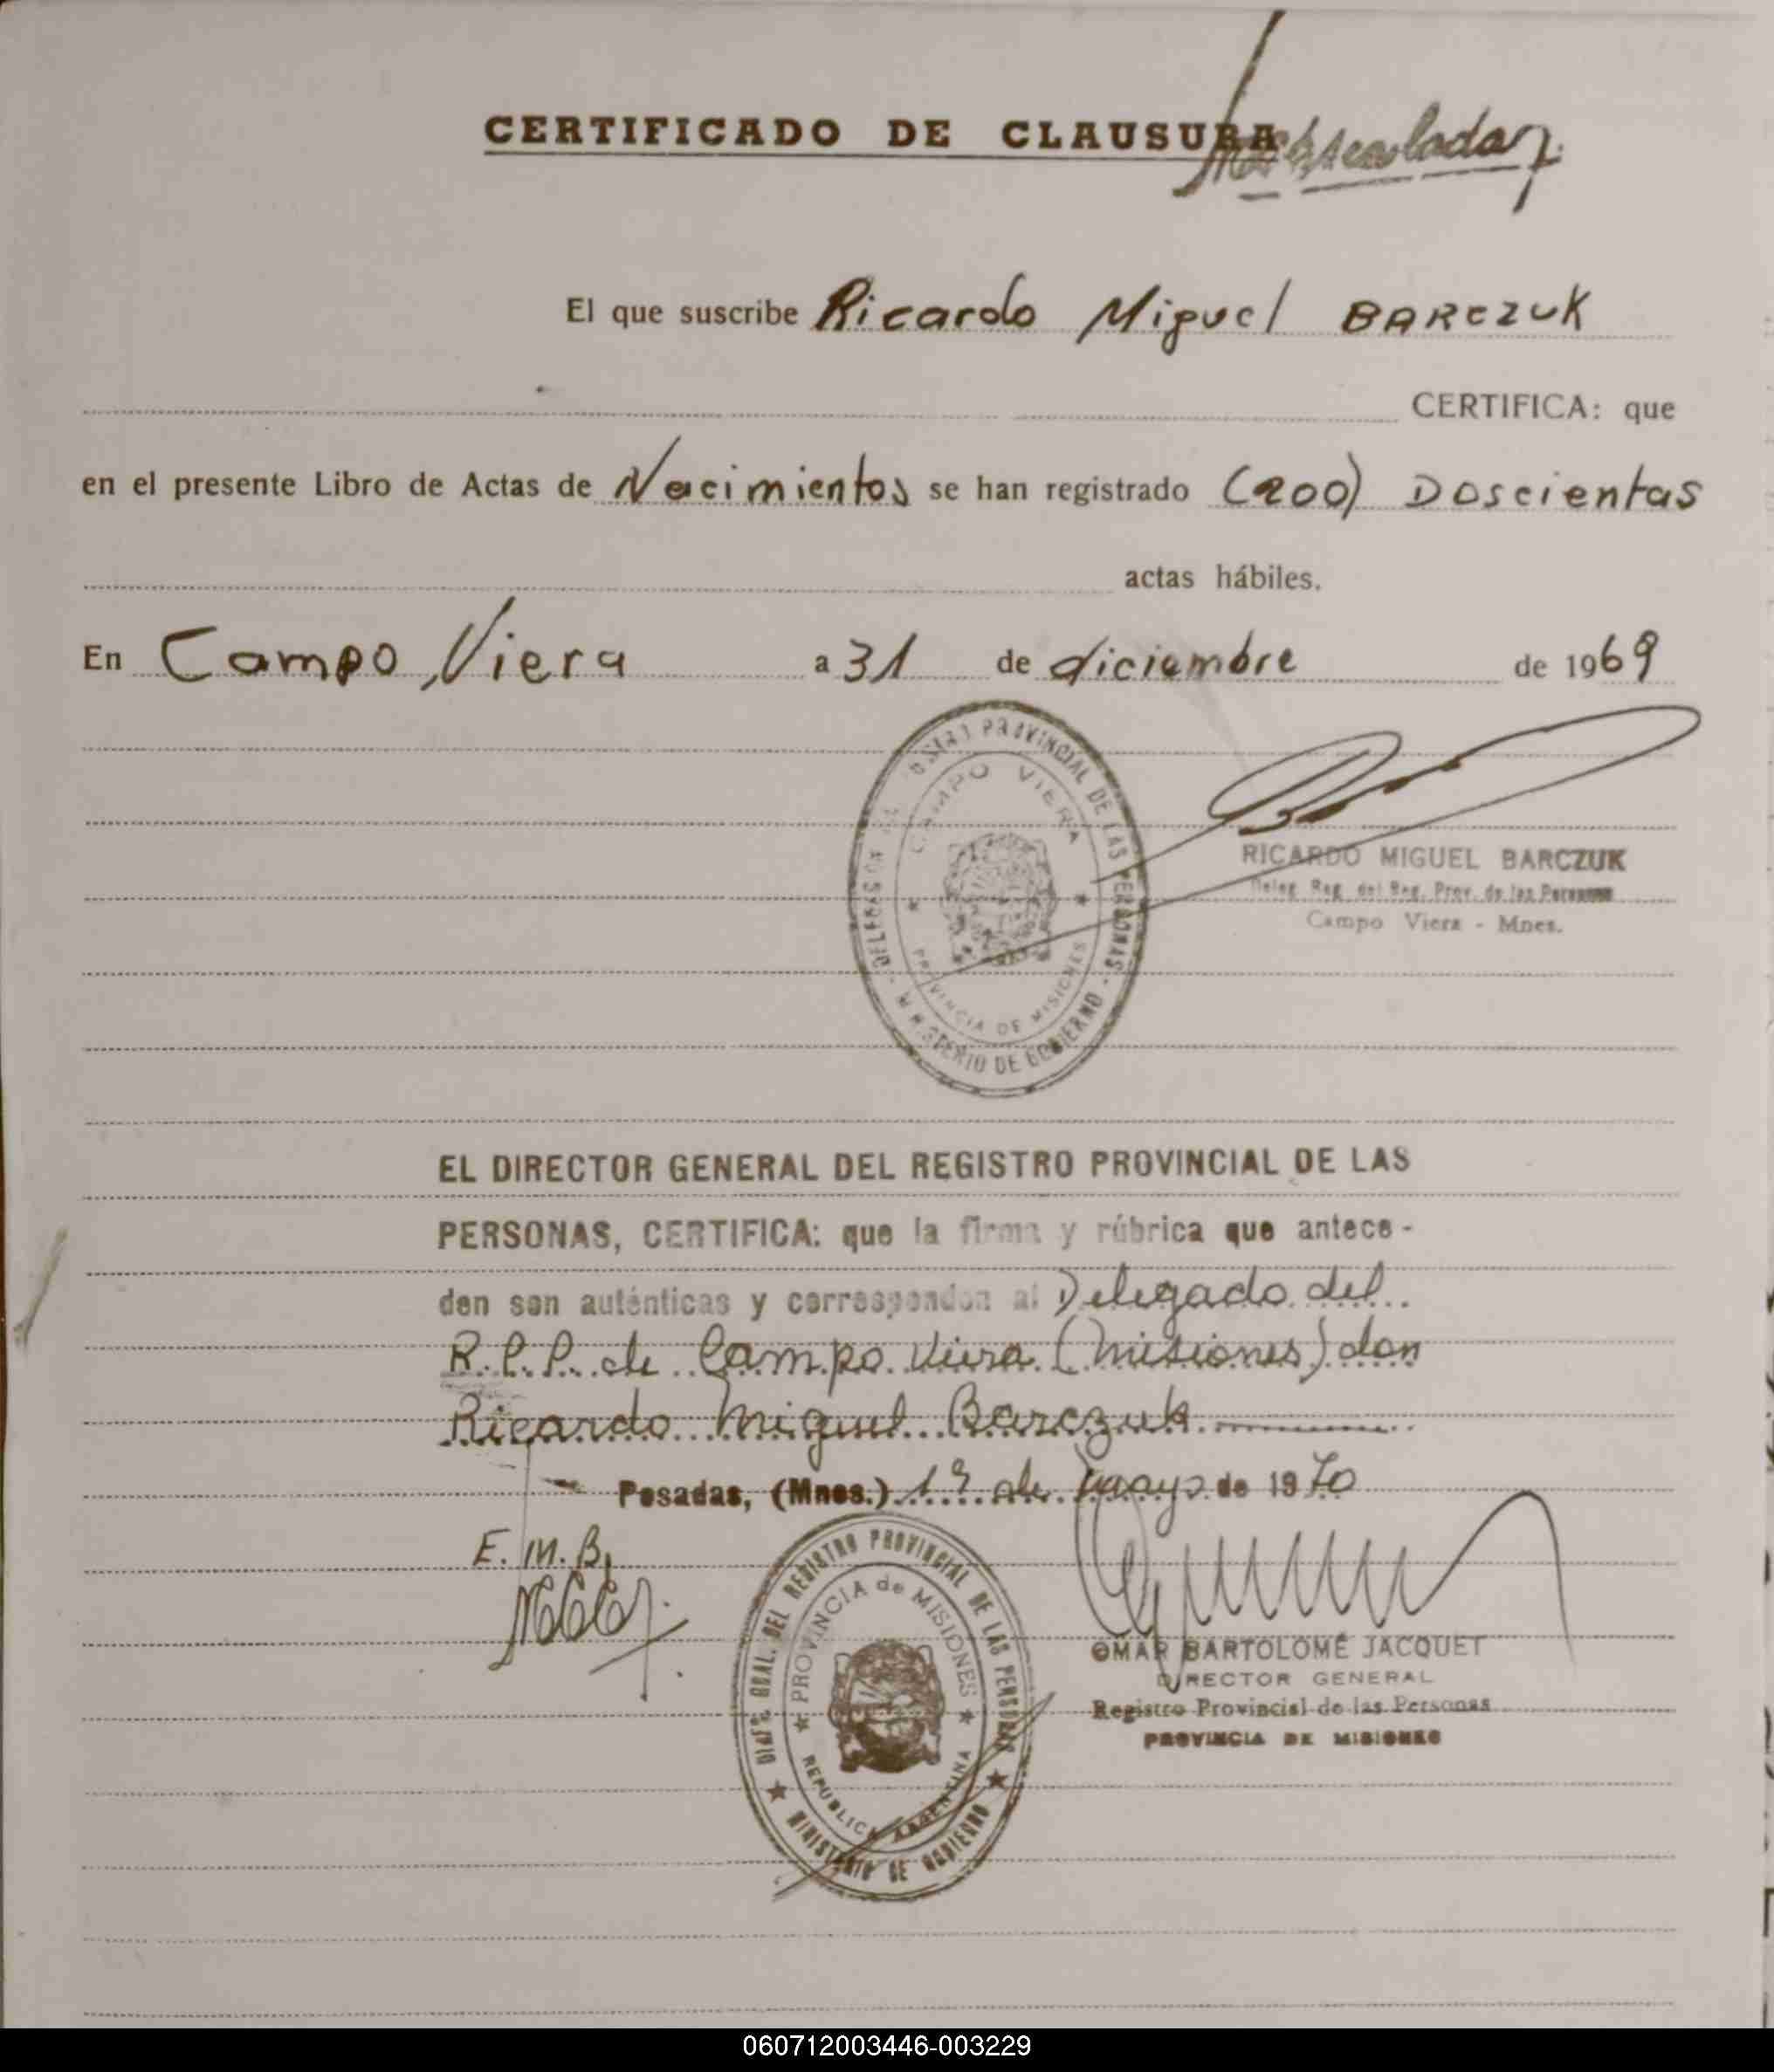 CERTIFICADO DE CLAUSURA
El que suscribe Ricardo Miguel BARCZUK
CERTIFICA: que
en el presente Libro de Actas de Nacimientos se han registrado (200) Doscientas
actas hábiles.
En Campo Viera a 31 de diciembre de 1969
PROVINCIAL DE LAS PERSONAS
CAMPO VIERA
PROVINCIA DE MISIONES
MINISTERIO DE GOBIERNO
RICARDO MIGUEL BARCZUK
Deleg. Reg. del Reg. Prov. de las Personas
Campo Viera - Mnes.
EL DIRECTOR GENERAL DEL REGISTRO PROVINCIAL DE LAS
PERSONAS, CERTIFICA: que la firma y rúbrica que antece-
den son auténticas y corresponden al Delegado del
R.P.P. de Campo Viera (Misiones) don
Ricardo Miguel Barczuk
Posadas, (Mnes.) 1º de mayo de 1970
E.M.B.
DIREC. GRAL. DEL REGISTRO PROVINCIAL DE LAS PERSONAS
PROVINCIA de MISIONES
REPUBLICA ARGENTINA
MINISTERIO DE GOBIERNO
OMAR BARTOLOMÉ JACQUET
DIRECTOR GENERAL
Registro Provincial de las Personas
PROVINCIA DE MISIONES
060712003446-003229